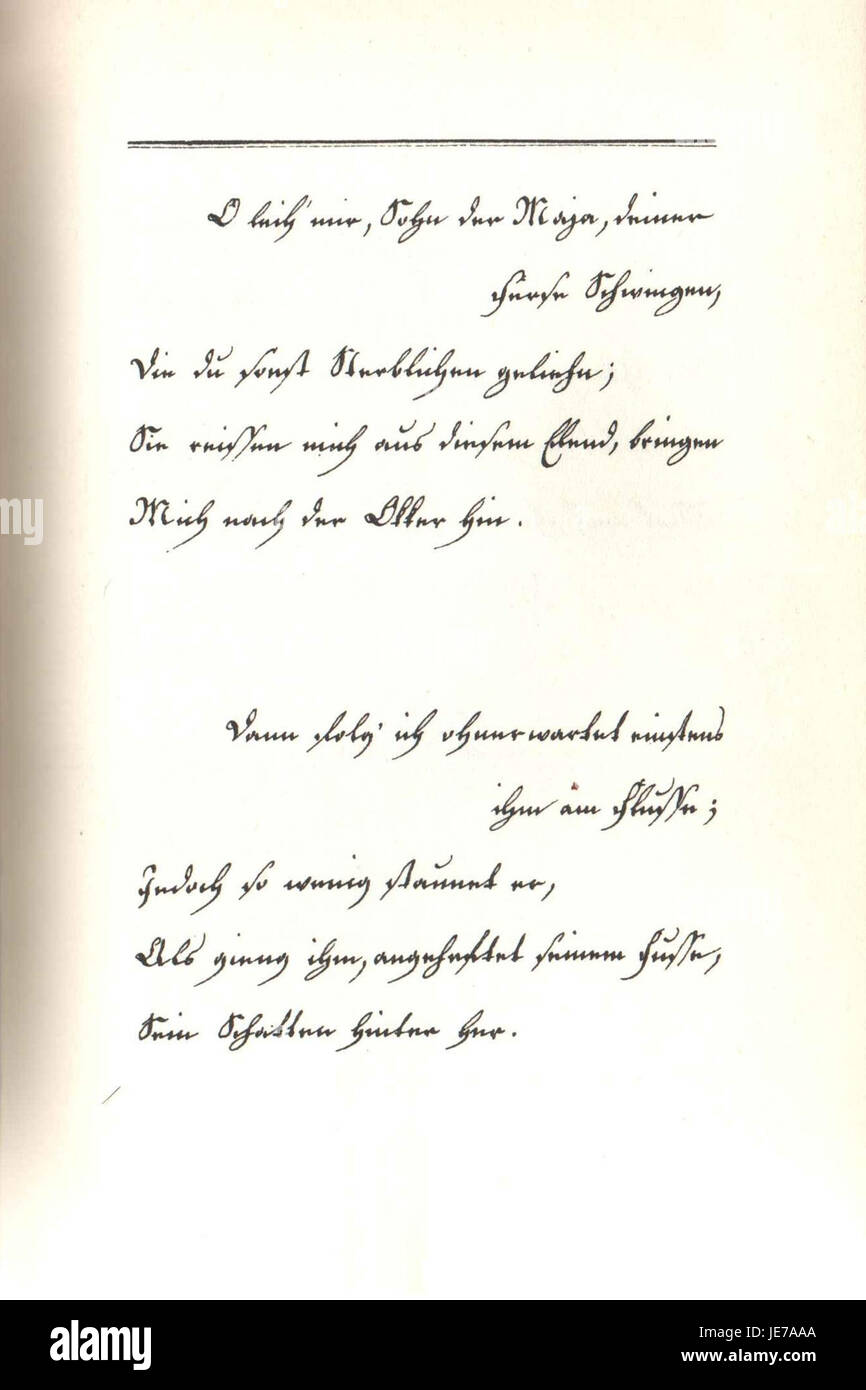 O leih' mir, Sohn der Maja, deiner
Ferse Schwingen,
Die du sonst Sterblichen geliehn;
Sie reissen mich aus diesem Elend, bringen
Mich nach der Okker hin.
Dann folg' ich ohnerwartet einstens
ihm am Flusse;
Jedoch so wenig staunet er,
Als gieng ihm, angeheftet seinem Fusse,
Sein Schatten hinter her.
my
alamy
Image ID: JE7AAA
www.alamy.com